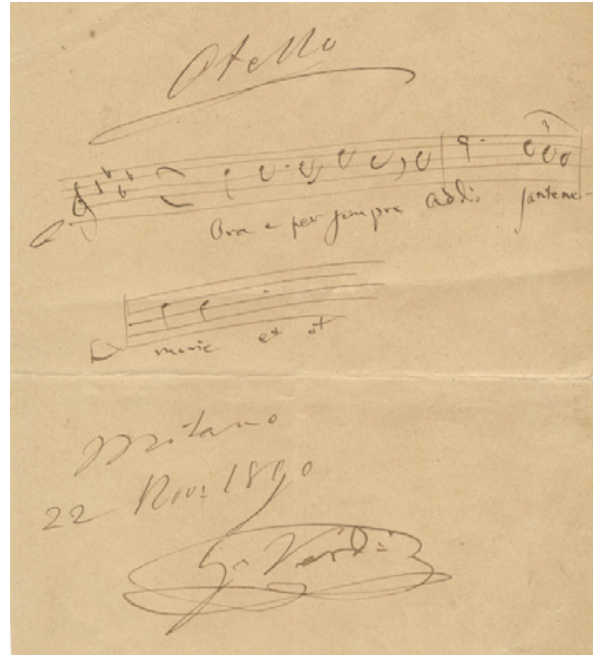 Otello
Ora e per sempre addio sante me-
morie et et
Milano
22 Nov: 1890
G. Verdi